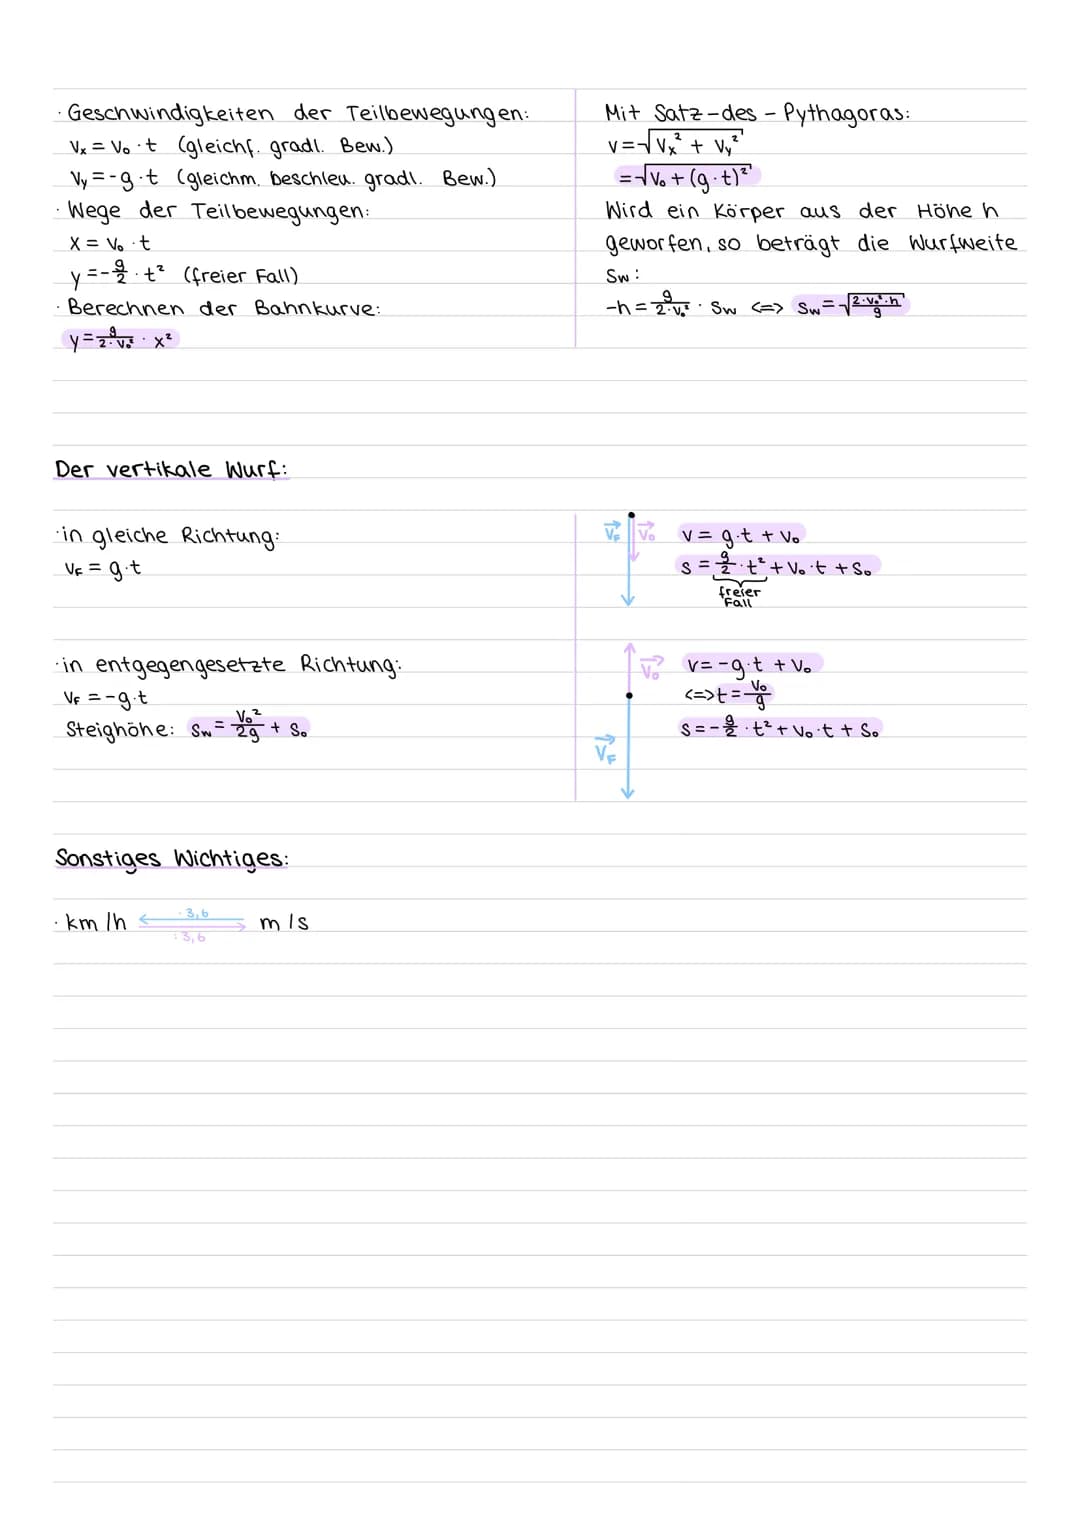 · Geschwindigkeiten der Teilbewegungen:
Vx = V₀ · t (gleichf. gradl. Bew.)
Vy = -g · t (gleichm. beschleu. gradl. Bew.)
· Wege der Teilbewegungen:
x = V₀ · t
y = -g/2 · t² (freier Fall)
· Berechnen der Bahnkurve:
y = g/(2·V₀²) · x²
Mit Satz-des-Pythagoras:
v = √(Vx² + Vy²)
= √(V₀ + (g·t)²)
Wird ein Körper aus der Höhe h
geworfen, so beträgt die Wurfweite
Sw:
-h = g/(2·V₀²) · Sw <=> Sw = √(2·V₀²·h/g)
Der vertikale Wurf:
· in gleiche Richtung:
VF = g·t
VF V₀
v = g·t + V₀
s = g/2 · t² + V₀·t + S₀
freier
Fall
· in entgegengesetzte Richtung:
VF = -g·t
Steighöhe: Sw = V₀²/2g + S₀
V₀
VF
v = -g·t + V₀
<=> t = V₀/g
s = -g/2 · t² + V₀·t + S₀
Sonstiges Wichtiges:
· km/h · 3,6 m/s
: 3,6